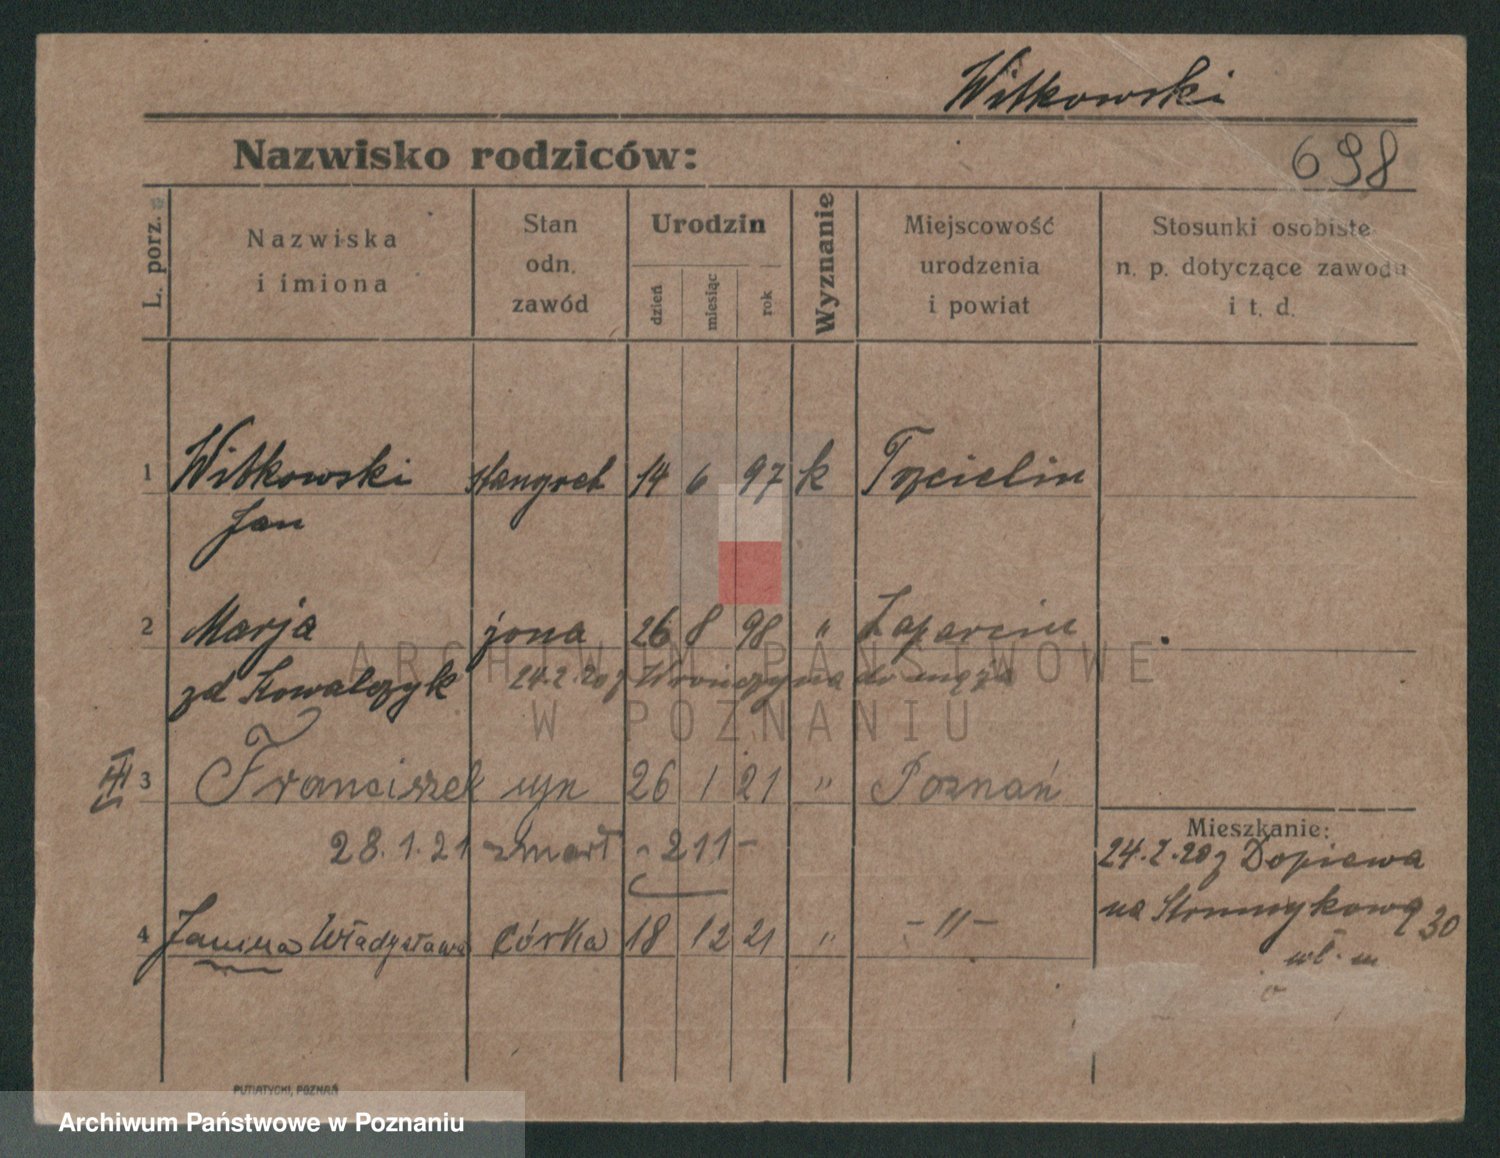 Witkowski
Nazwisko rodziców:
698
L. porz.
Nazwiska
i imiona
Stan
odn.
zawód
Urodzin
dzień
miesiąc
rok
Wyznanie
Miejscowość
urodzenia
i powiat
Stosunki osobiste
n. p. dotyczące zawodu
i t. d.
1 Witkowski stangret 14 6 97 k Trzcielin
Jan
2 Marja żona 26 8 98 " Zaparcin
zd Kowalczyk 24.2.20 z Wronczyna do męża
ARCHIWUM PAŃSTWOWE
W POZNANIU
III
3 Franciszek syn 26 1 21 " Poznań
28.1.21 zmarł - 211 -
Mieszkanie:
24.2.20 z Dopiewa
na Strumykową 30
wł. m
4 Janina Władysława córka 18 12 21 " - " -
PUTIATYCKI, POZNAŃ
Archiwum Państwowe w Poznaniu